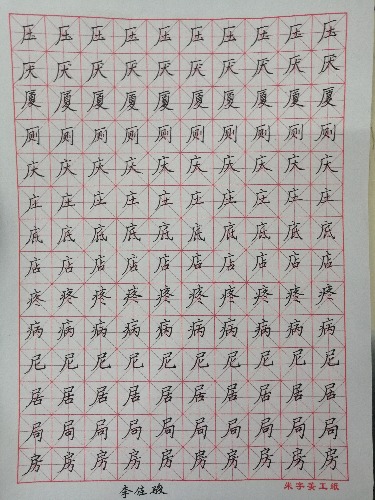 压压压压压压压压压压
厌厌厌厌厌厌厌厌厌厌
厦厦厦厦厦厦厦厦厦厦
厕厕厕厕厕厕厕厕厕厕
庆庆庆庆庆庆庆庆庆庆
庄庄庄庄庄庄庄庄庄庄
底底底底底底底底底底
店店店店店店店店店店
疼疼疼疼疼疼疼疼疼疼
病病病病病病病病病病
尼尼尼尼尼尼尼尼尼尼
居居居居居居居居居居
局局局局局局局局局局
房房房房房房房房房房
李佳骏 米字美工纸